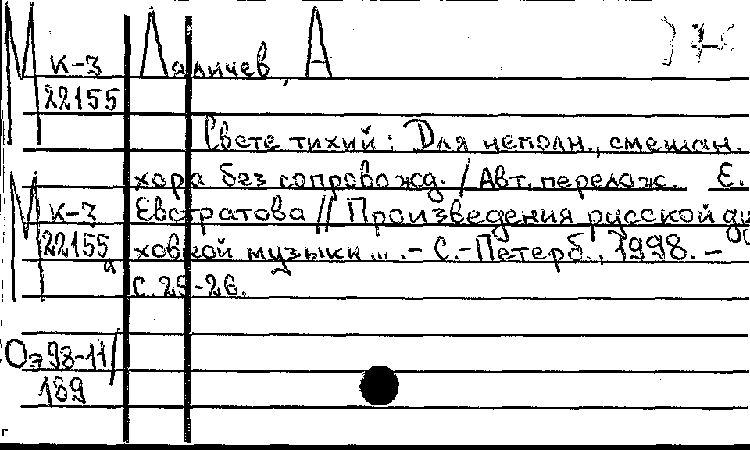 М к-3 Лаличев, А
22155
Свете тихий : Для неполн., смешан.
хора без сопровожд. / Авт. перелож. Е.
М к-3 Евстратова // Произведения русской ду
22155 ховной музыки ... . - С.-Петерб., 1998. -
а с. 25-26.
Оэ98-11/
189